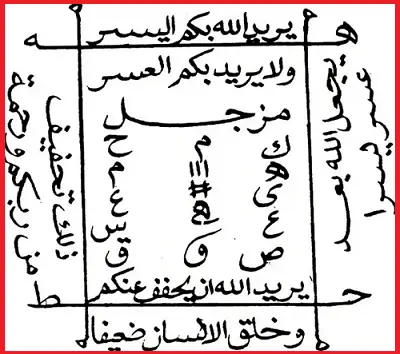 يريد الله بكم اليسر
ه ه
ولا يريد بكم العسر
مزجل
ك م ح
ه ااا م
ى # ع
ع س
ص و ق
يريد الله ان يخفف عنكم
ح ط
وخلق الانسان ضعيفا
يجعل الله بعد
عسر يسرا
ذلك تخفيف
من ربكم ورحمة